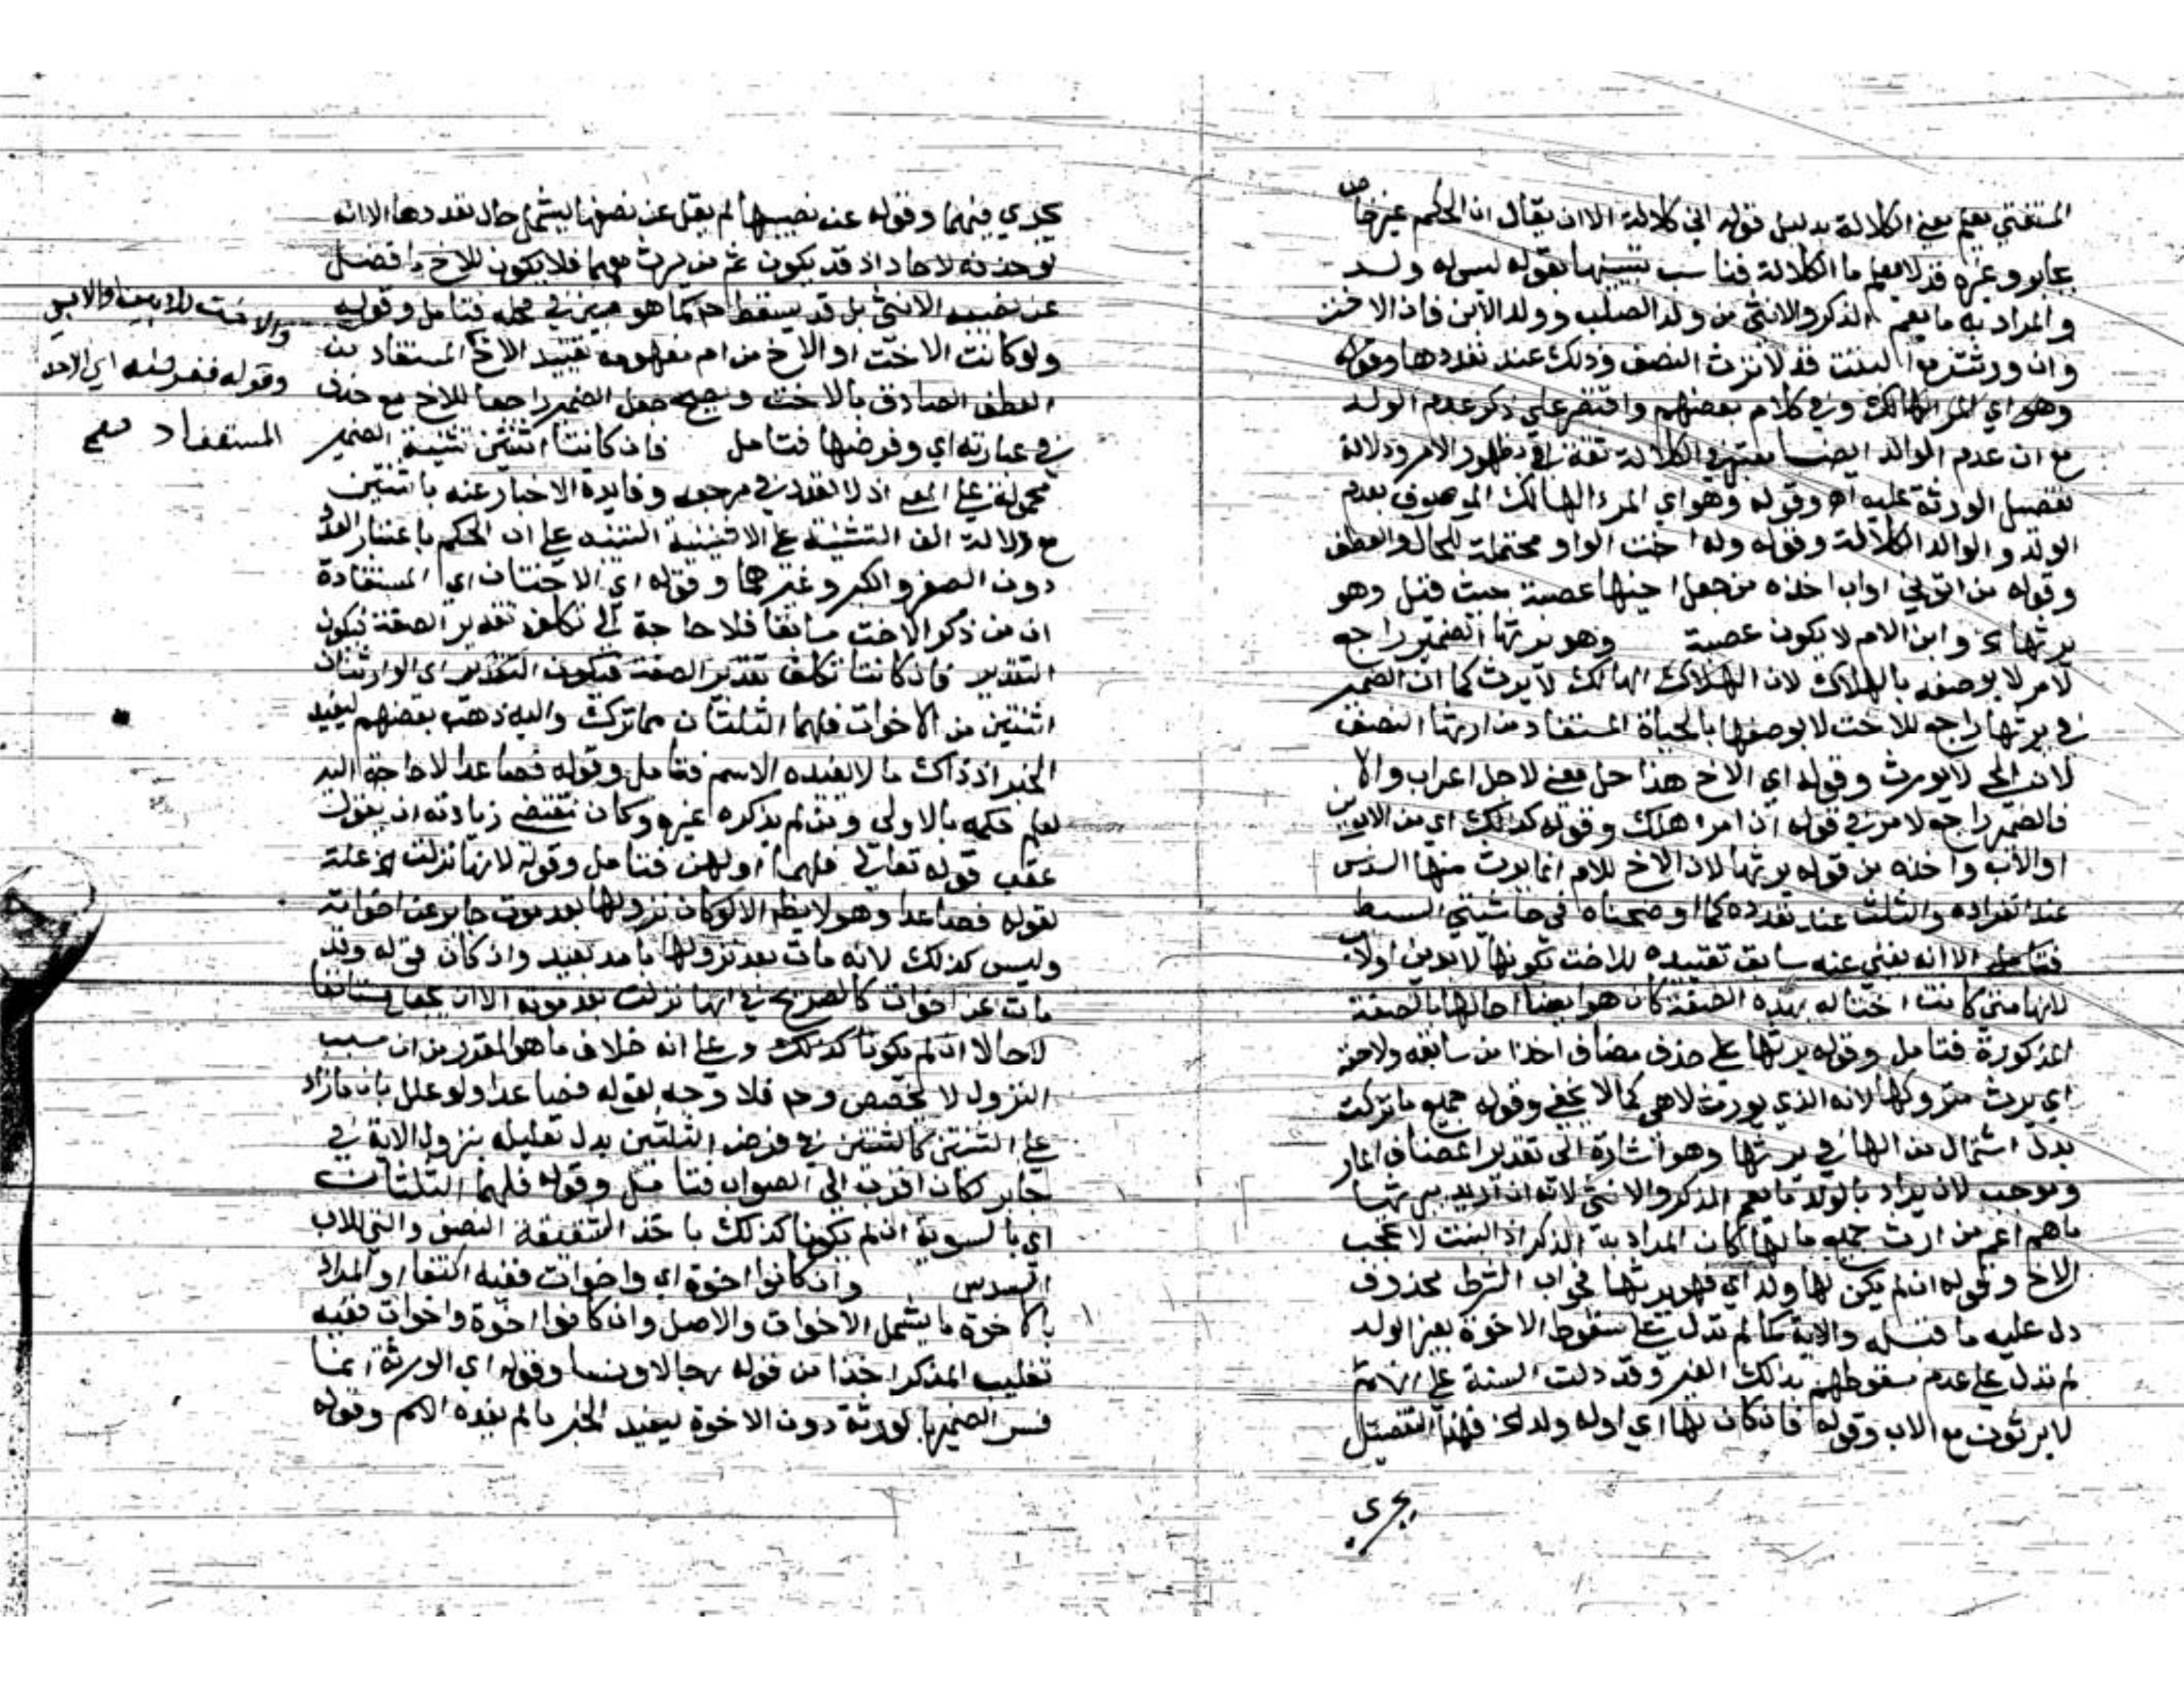 المستفتي يعلم معنى الكلالة بدليل قوله اني كلالة الا ان يقال ان الحكم غير خاص
بجابر وغيره قد لا يعلم ما الكلالة فناسب تبيينها بقوله ليس له ولد
والمراد به ما يعم الذكر والانثى من ولد الصلب وولد الابن فان الاخت
وان ورثت مع البنت قد لا ترث النصف وذلك عند تعددها وقوله
وهو اي المرء الهالك وفي كلام بعضهم واقتصر على ذكر عدم الولد
مع ان عدم الوالد ايضا معتبر في الكلالة ثقة بظهور الامر ودلالة
تفصيل الورثة عليه اه وقوله وهو اي المرء الهالك الموصوف بعدم
الولد والوالد الكلالة وقوله وله اخت الواو محتملة للحال والعطف
وقوله من ابوين او اب اخذه من جعل اخيها عصبة حيث قيل وهو
يرثها الخ وابن الام لا يكون عصبة وهو يرثها الضمير راجع
لامرء لا بوصفه بالهلاك لان الهالك لا يرث كما ان الضمير
في يرثها راجع للاخت لا بوصفها بالحياة المستفاد من ارثها النصف
لان الحي لا يورث وقوله اي الاخ هذا حل معنى لا حل اعراب والا
فالضمير راجع لامرء في قوله ان امرء هلك وقوله كذلك اي من الابوين
او الاب واخذه من قوله يرثها لان الاخ للام انما يرث منها السدس
عند انفراده والثلث عند تعدده كما اوضحناه في حاشيتي السبط
فتامل الا انه يغني عنه سابق تقييده للاخت بكونها لابوين او لاب
لانها متى كانت اختا له بهذه الصفة كان هو ايضا اخا لها بالصفة
المذكورة فتامل وقوله يرثها على حذف مضاف اخذا من سابقه ولاحقه
اي يرث متروكها لانه الذي يورث لا هي كما لا يخفى وقوله جميع ما تركت
بدل اشتمال من الها في يرثها وهو اشارة الى تقدير المضاف المار
وموجب لان يراد بالولد ما يعم الذكر والانثى لانه ان اريد بيرثها
ما هو اعم من ارث جميع مالها كان المراد به الذكر اذ البنت لا تحجب
الاخ وقوله ان لم يكن لها ولد اي فهو يرثها فجواب الشرط محذوف
دل عليه ما قبله والاية كما لم تدل على سقوط الاخوة بغير الولد
لم تدل على عدم سقوطهم بذلك الغير وقد دلت السنة على انهم
لا يرثون مع الاب وقوله فان كان لها اي او له ولد الخ فهذا التفصيل
يجري
يجري فيهما وقوله عن نصيبها لم يقل عن نصفها ليشمل حال تعددها الا انه
عن نصيب الانثى بل قد يسقط كما هو مبين في محله فتامل وقوله
ولو كانت الاخت او الاخ من ام مفهومه تقييد الاخ المستفاد من
العطف الصادق بالاخت جعل الضمير راجعا للاخ مع حذف
في عبارته اي وفرضها فتامل فان كانتا اثنتين تثنية الضمير
محمولة على المعنى اذ لا تعدد في مرجعه وفايدة الاخبار عنه باثنتين
مع دلالة الف التثنية على الاثنينية التنبيه على ان الحكم باعتبار العدد
دون الصغر والكبر وغيرهما وقوله اي الاختان اي المستفادة
ان من ذكر الاخت سابقا فلا حاجة الى تكلف تقدير الصفة فيكون
التقدير فان كانتا تكلف تقدير الصفة فيكون التقدير اي الوارثتان
اثنتين من الاخوات فلهما الثلثان مما ترك واليه ذهب بعضهم ليفيد
الخبر اذ ذاك ما لا يفيده الاسم فتامل وقوله فصاعدا لا حاجة اليه
لعلم حكمه بالاولى ومن ثم لم يذكره غيره وكان مقتضى زيادته ان يقول
عقب قوله تعالى فلهما او لهن فتامل وقوله لانها نزلت الخ علة
لقوله فصاعدا وهو لا يظهر الا لو كان نزولها بعد موت جابر عن اخواته
وليس كذلك لانه مات بعد نزولها بامد بعيد وان كان قوله وقد
مات عن اخوات كالصريح في انها نزلت بعد موته الا ان يجعل مستانفا
لا حالا ان لم يكونا كذلك وعلى انه خلاف ما هو المقرر من ان سبب
النزول لا يخصص وح فلا وجه لقوله فصاعدا ولو علل بان ما زاد
على الثنتين كالثنتين في فرض الثلثين بدل تعليله بنزول الاية في
جابر لكان اقرب الى الصواب فتامل وقوله فلهما الثلثان
اي بالسوية ان لم يكونا كذلك باخذ الشقيقة النصف والتي للاب
السدس وان كانوا اخوة اي واخوات ففيه اكتفا او المراد
بالاخوة ما يشمل الاخوات والاصل وان كانوا اخوة واخوات ففيه
تغليب المذكر اخذا من قوله رجالا ونسا وقوله اي الورثة انما
فسر الضمير بالورثة دون الاخوة ليفيد الخبر ما لم يفده الاسم وقوله
والاخت للابوين والاب
وقوله
المستفاد